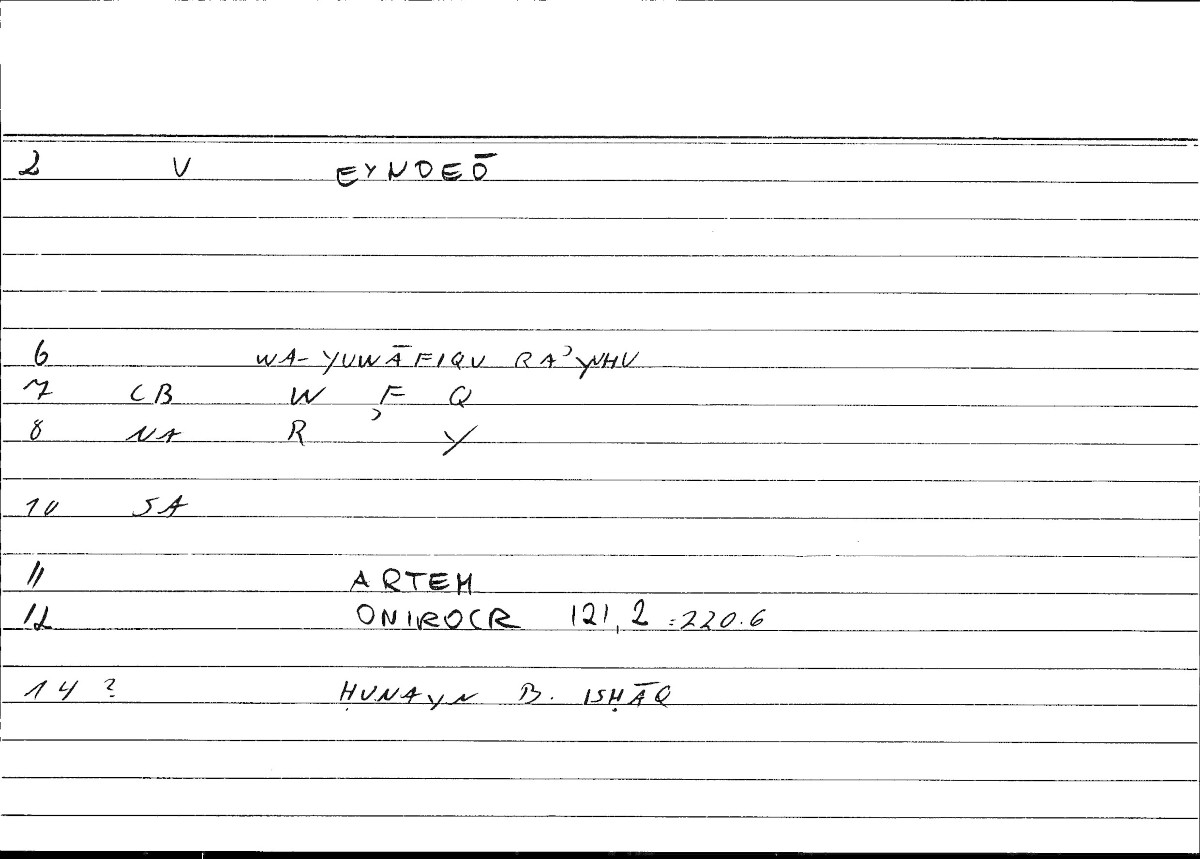 2 V EYNOEŌ
6 WA-YUWĀFIQU RAʾYUHU
7 CB W F Q
8 NA R ʾ Y
10 SA
11 ARTEM
12 ONIROCR 121,2 =220.6
14 ? ḤUNAYN B. ISḤĀQ